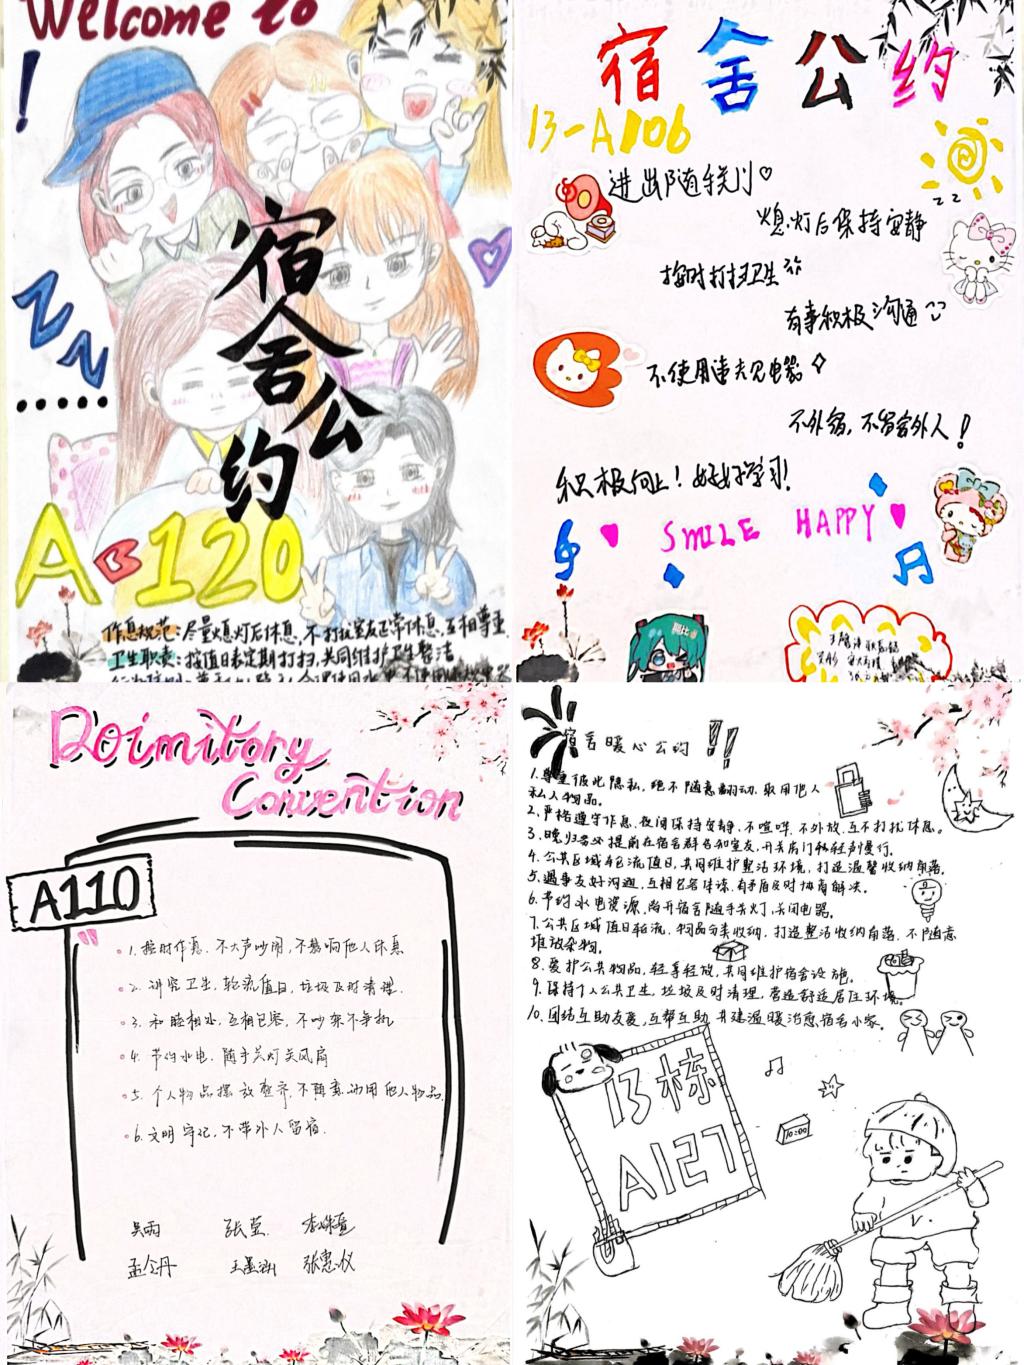 Welcome to
!
宿舍公约
ZZZ
......
A 120
作息规范:尽量熄灯后休息,不打扰室友正常休息,互相尊重
卫生职责:按值日表定期打扫,共同维护卫生整洁
宿舍公约
13-A106
进出随手关门♡
zz
熄灯后保持安静
按时打扫卫生
有事积极沟通
不使用违规电器
不外宿,不留宿外人!
积极向上!好好学习!
SMILE HAPPY
Doimitory
Convention
A110
1. 按时作息,不大声吵闹,不影响他人休息
2. 讲究卫生,轮流值日,垃圾及时清理
3. 和睦相处,互相包容,不吵架不争执
4. 节约水电,随手关灯关风扇
5. 个人物品摆放整齐,不随意动用他人物品
6. 文明守纪,不带外人留宿
吴雨 张莹
王墨涵 张惠仪
宿舍暖心公约 !!
1.尊重彼此隐私,绝不随意翻动、取用他人
私人物品。
2.严格遵守作息,夜间保持安静,不喧哗、不外放,互不打扰休息。
3.晚归务必提前在宿舍群告知室友,开关房门轻声慢行。
4.公共区域轮流值日,共同维护整洁环境,打造温馨收纳角落。
5.遇事友好沟通,互相包容体谅,有矛盾及时协商解决。
6.节约水电资源,离开宿舍随手关灯、关闭电器。
7.公共区域值日轮流,物品分类收纳,打造整洁收纳角落,不随意
堆放杂物。
8.爱护公共物品,轻拿轻放,共同维护宿舍设施。
9.保持个人公共卫生,垃圾及时清理,营造舒适居住环境。
10.团结互助友爱,互帮互助,共建温暖治愈宿舍小家。
13栋
A127
10:00